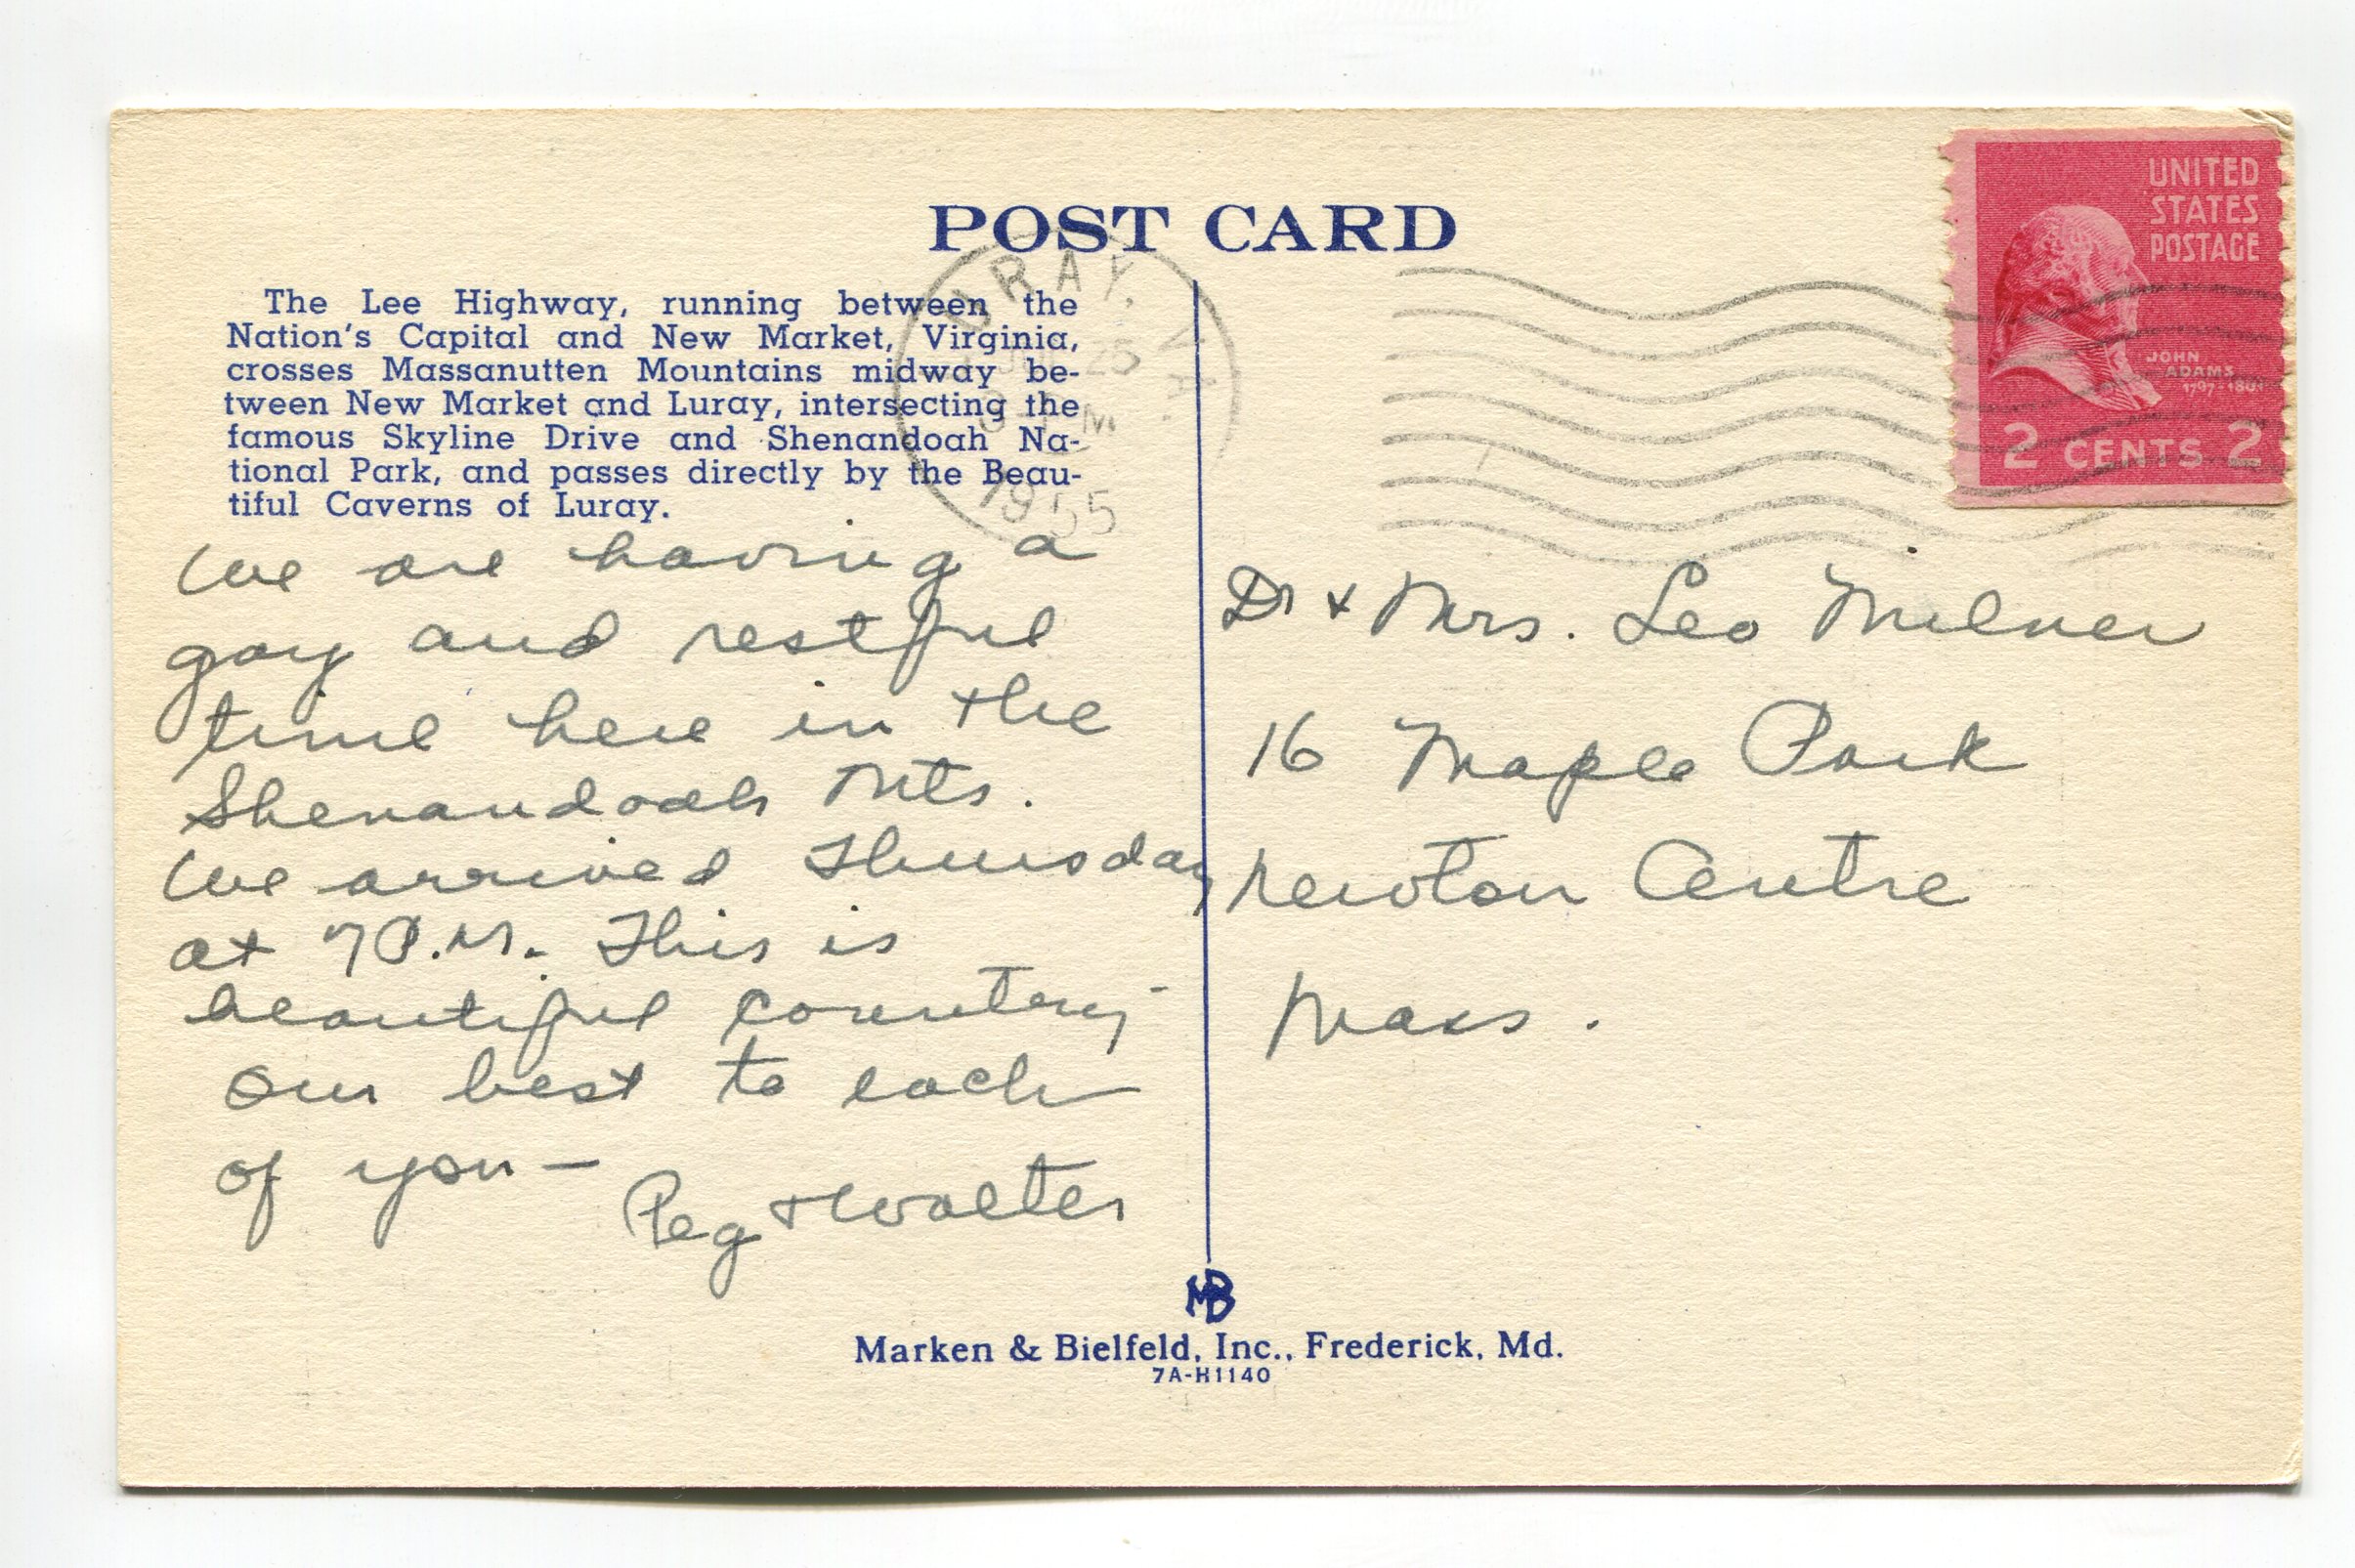 POST CARD
The Lee Highway, running between the
Nation's Capital and New Market, Virginia,
crosses Massanutten Mountains midway be-
tween New Market and Luray, intersecting the
famous Skyline Drive and Shenandoah Na-
tional Park, and passes directly by the Beau-
tiful Caverns of Luray.
LURAY, VA.
25
1955
UNITED
STATES
POSTAGE
JOHN
ADAMS
1797-1801
2 CENTS 2
We are having a
gay and restful
time here in the
Shenandoah Mts.
We arrived Thursday
at 7 P.M. This is
beautiful country-
Our best to each
of you —
Peg + Walter
Dr + Mrs. Leo Milner
16 Maple Park
Newton Centre
Mass.
MB
Marken & Bielfeld, Inc., Frederick, Md.
7A-H1140